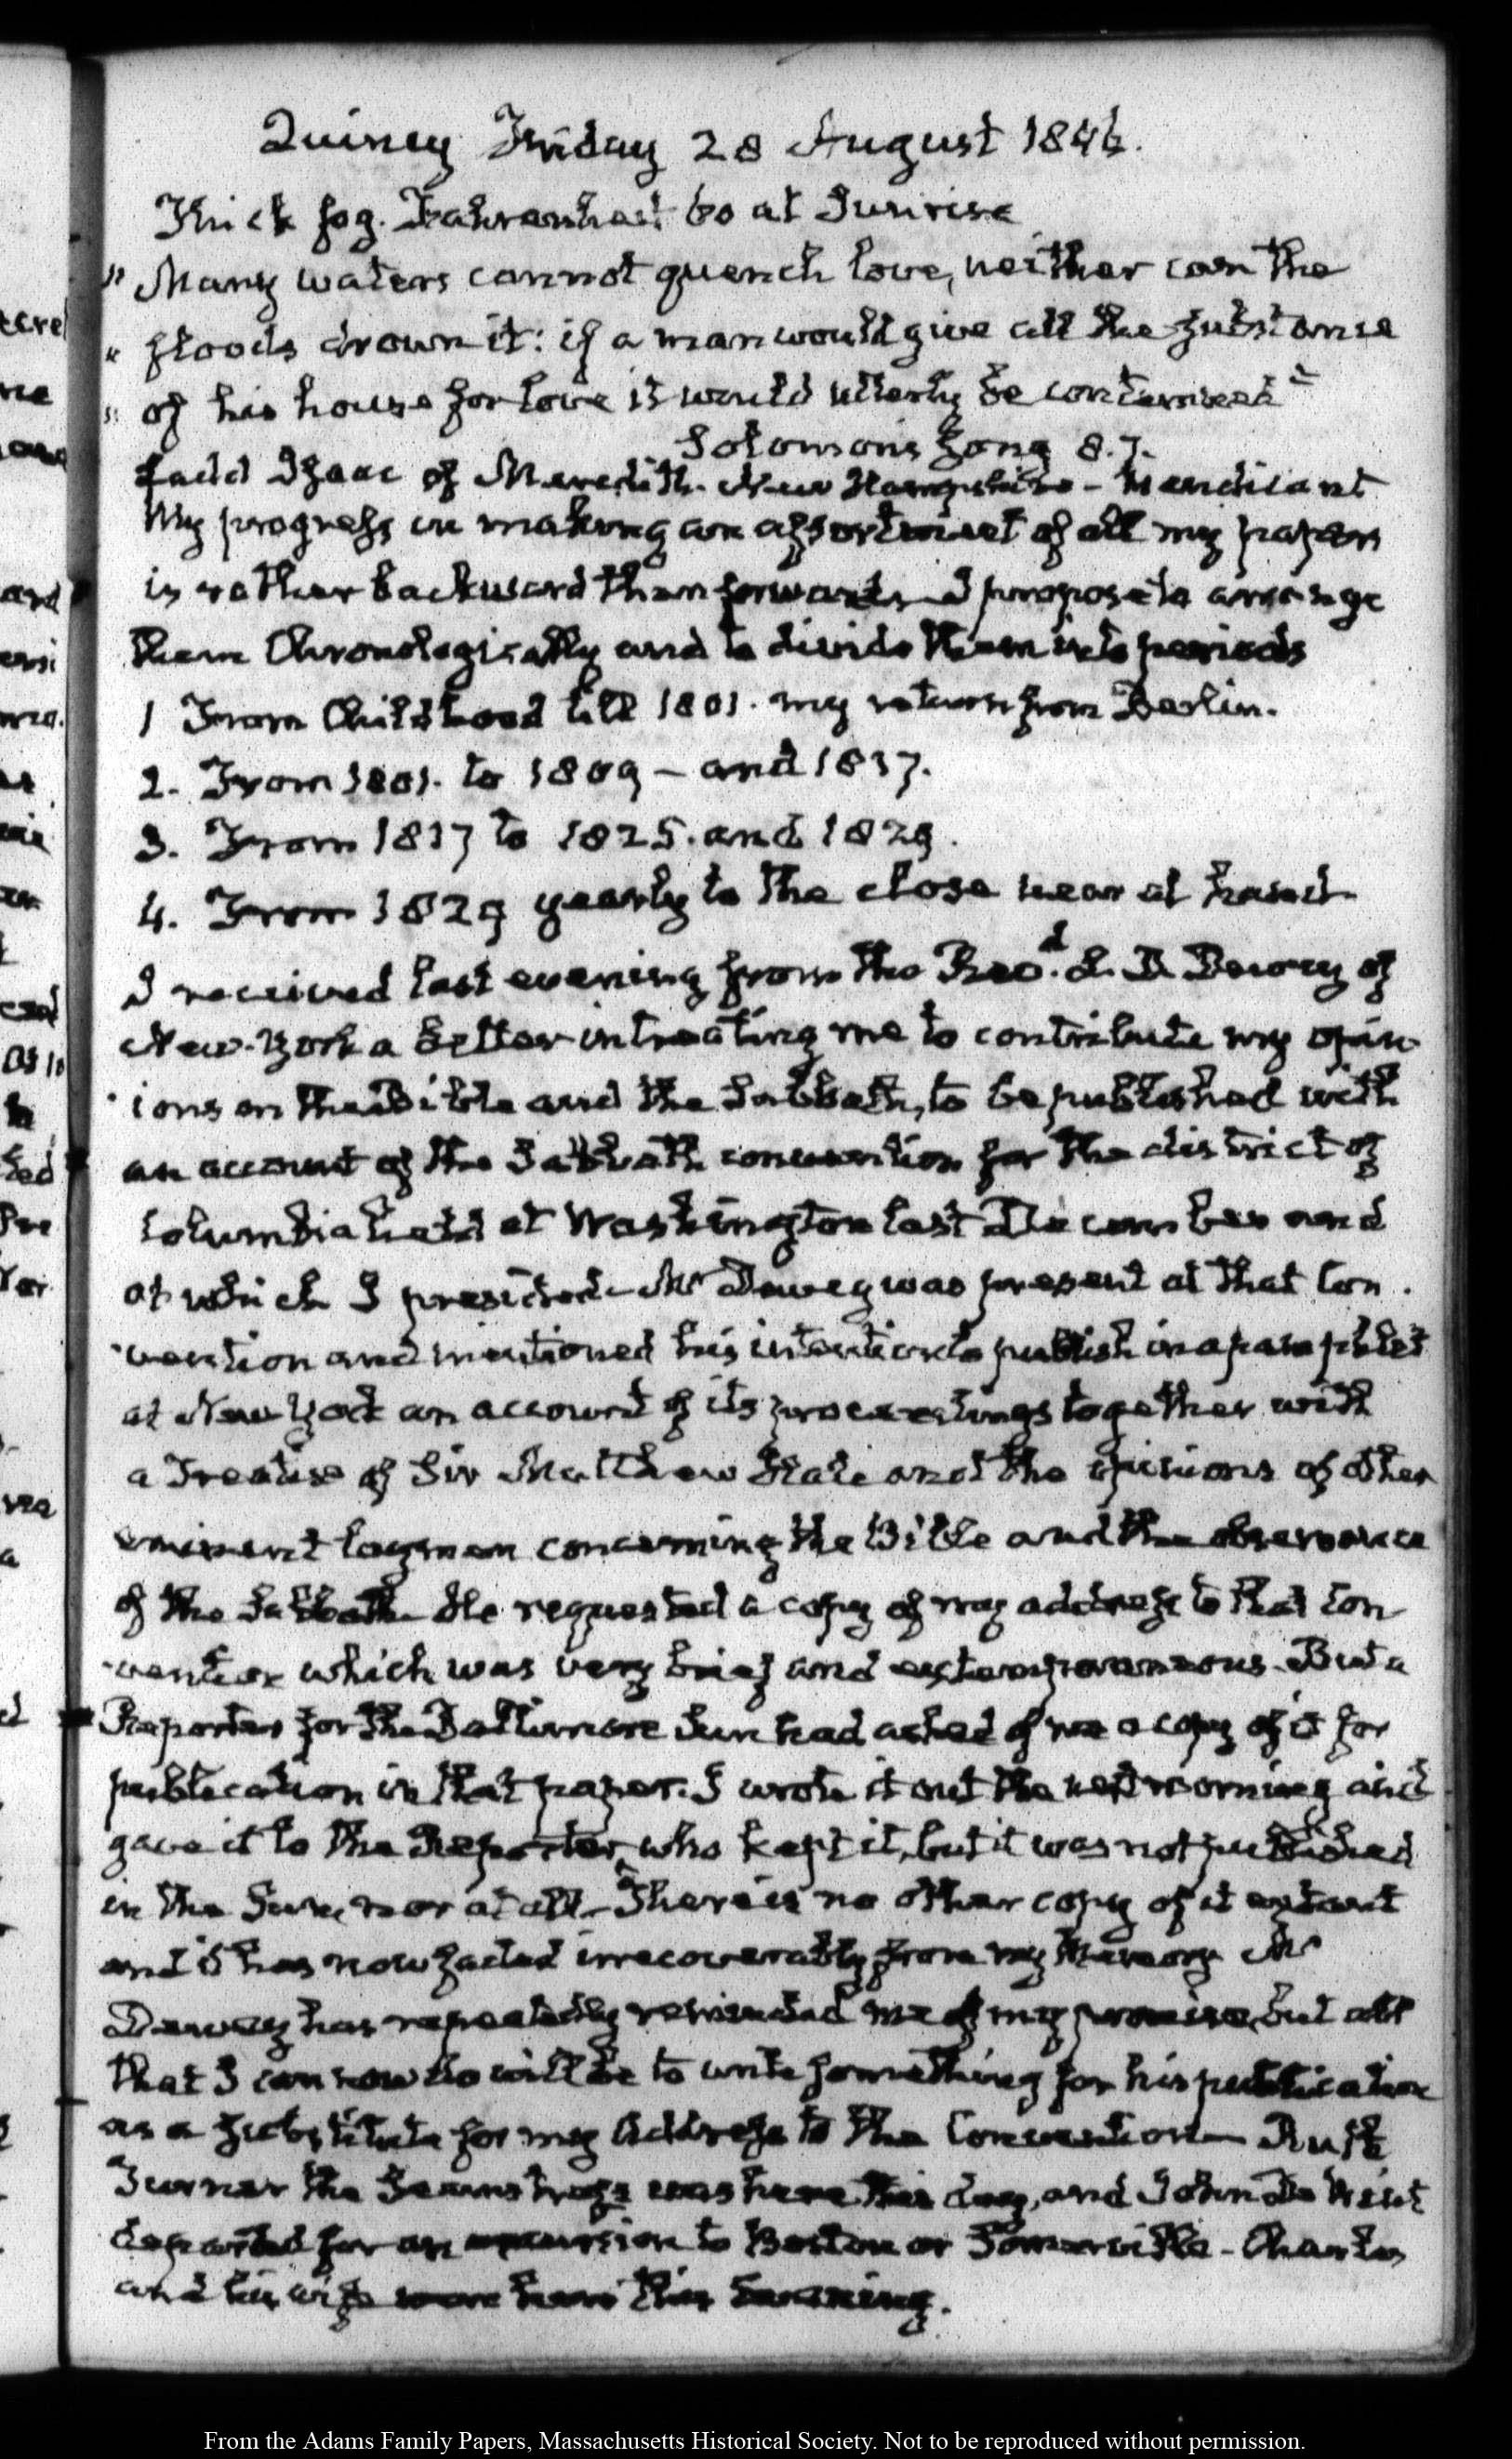 Quincy Friday 28 August 1846.
Thick fog. Fahrenheit 60 at Sunrise
" Many waters cannot quench love, neither can the
" floods drown it: if a man would give all the substance
" of his house for love it would utterly be contemned"
Solomons song 8.7.
Ladd Isaac of Meredith. New Hampshire – Mendicant
My progress in making an assortment of all my papers
is rather backward than forward – I propose to arrange
them Chronologically and to divide them into periods
1 From Childhood till 1801. my return from Berlin.
2. From 1801. to 1809 – and 1817.
3. From 1817 to 1825. and 1829.
4. From 1829 yearly to the close near at hand.
I received last evening from the Revd. Dewey of
New-York a Letter intreating me to contribute my opin-
ions on the Bible and the Sabbath, to be published with
an account of the Sabbath convention for the district of
Columbia held at Washington last December and
at which I presided – Mr Dewey was present at that Con-
vention and mentioned his intention to publish in a pamphlet
at New York an account of its proceedings together with
a Treatise of Sir Matthew Hale and the opinions of other
eminent laymen concerning the Bible and the observance
of the Sabbath – He requested a copy of my address to that Con
-vention which was very brief and extemporaneous – But a
Reporter for the Baltimore Sun had asked of me a copy of it for
publication in that paper. I wrote it out the next morning and
gave it to the Reporter, who kept it, but it was not published
in the Sun, nor at all – There is no other copy of it extant
and it has now faded irrecoverably from my Memory Mr
Dewey has repeatedly reminded me of my promise, but all
that I can now do will be to write something for his publication
as a substitute for my Address to the Convention – Ruth
Turner the Seamstress was here this day, and John De Wint
departed for an excursion to Boston or Somerville – Charles
and his wife were here this Evening.
From the Adams Family Papers, Massachusetts Historical Society. Not to be reproduced without permission.